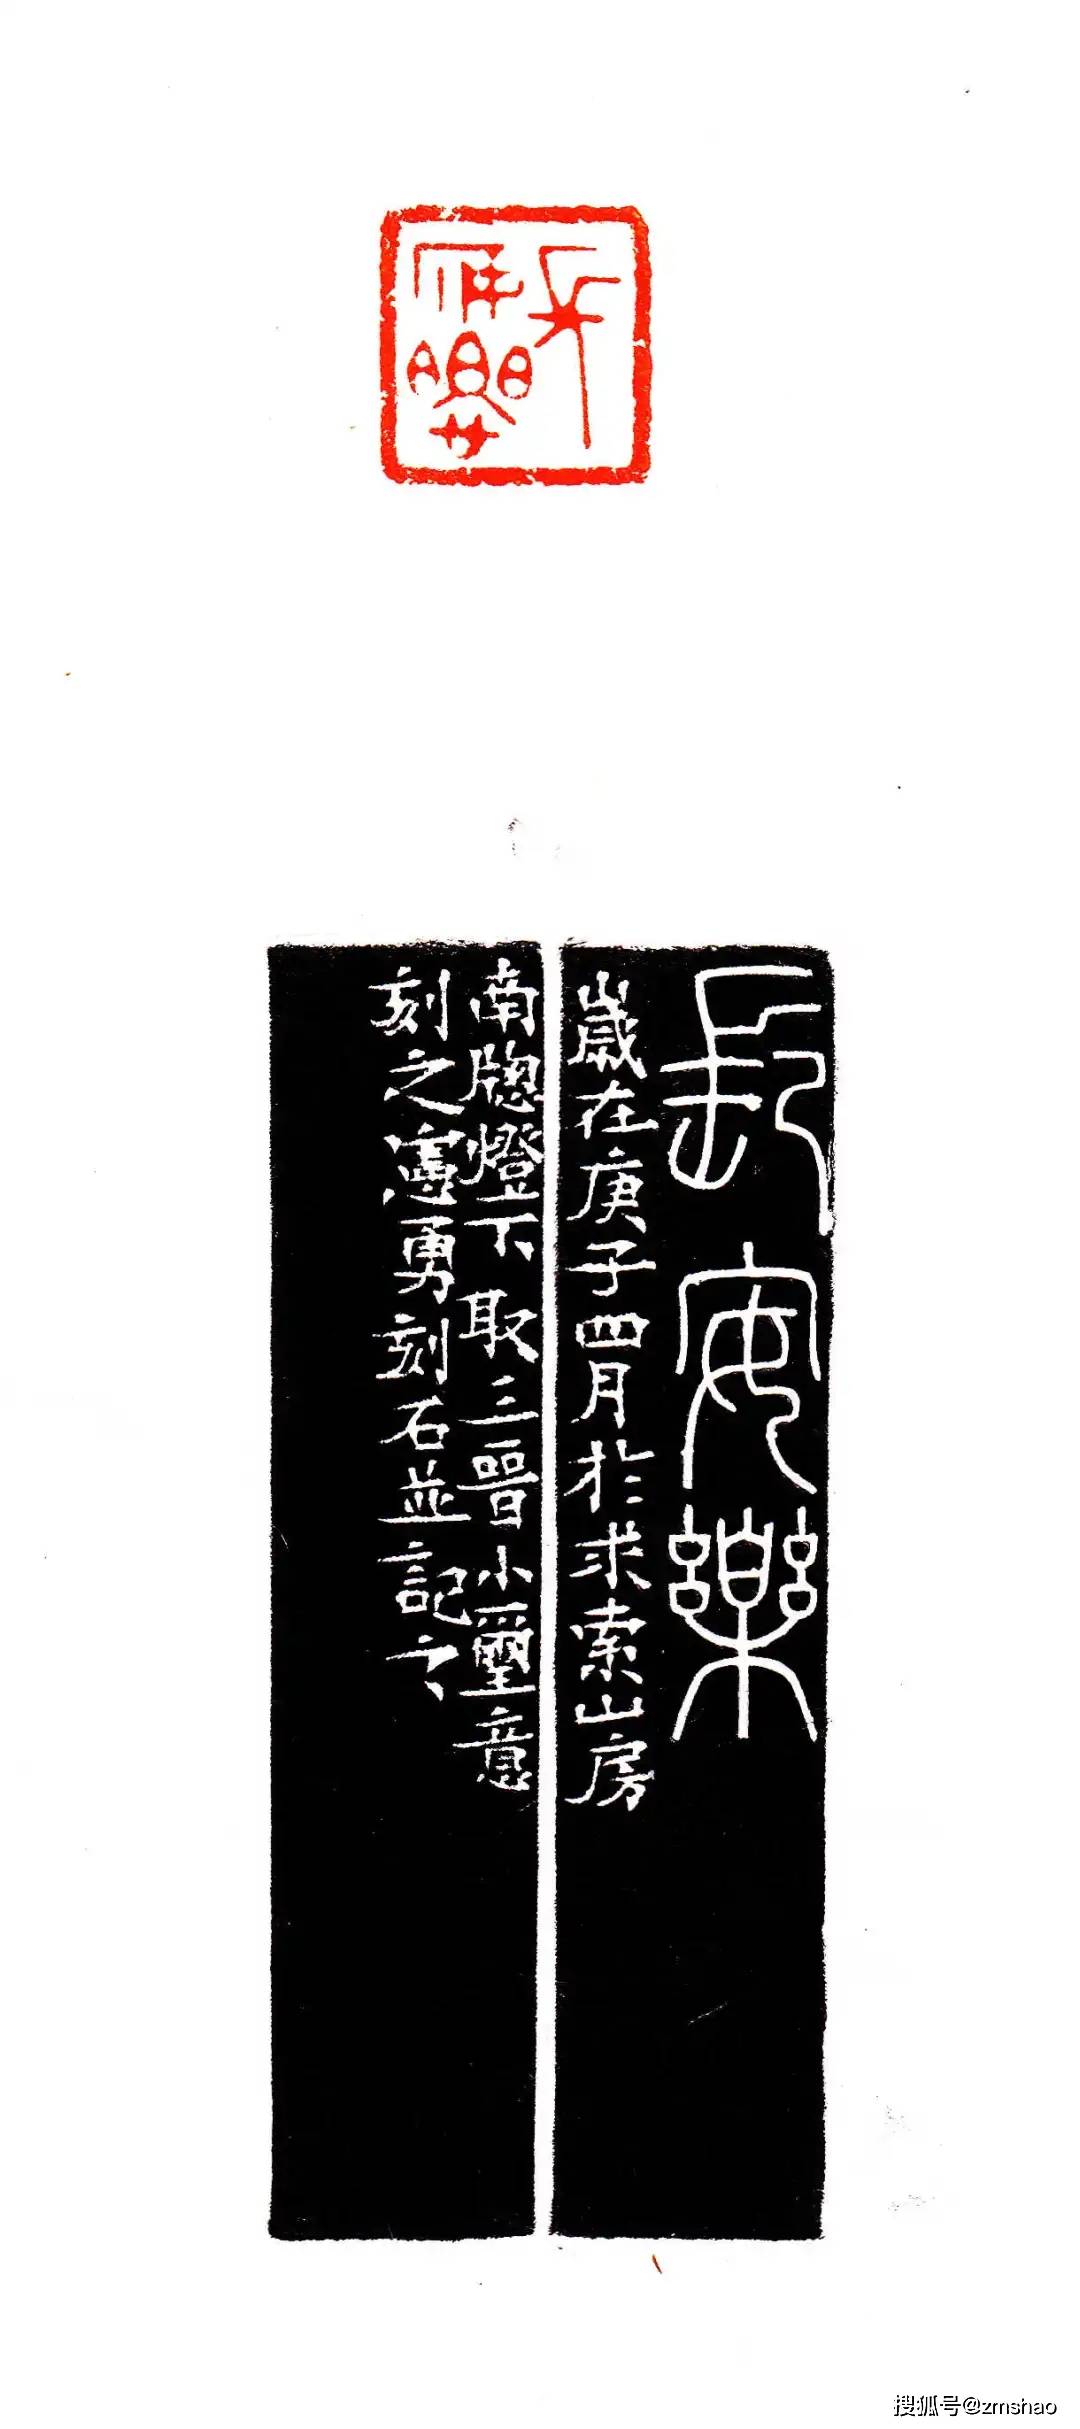 長安樂
長安樂
歲在庚子四月於求索山房
南牕燈下取三晉小璽意
刻之憲勇刻石並記之
搜狐号@zmshao